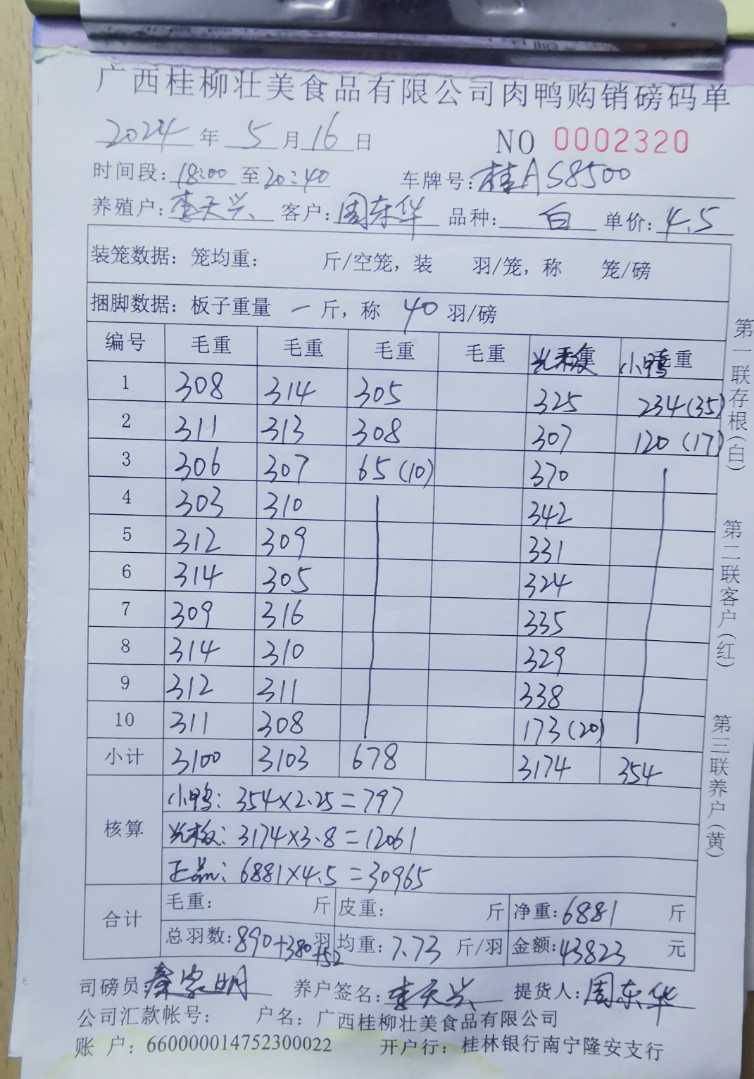 广西桂柳壮美食品有限公司肉鸭购销磅码单
2024 年 5 月 16 日 NO 0002320
时间段: 18:00 至 20:40 车牌号: 桂AS8500
养殖户: 李天兴 客户: 周东华 品种: 白 单价: 4.5
装笼数据: 笼均重: 斤/空笼, 装 羽/笼, 称 笼/磅
捆脚数据: 板子重量 一 斤, 称 40 羽/磅
编号 毛重 毛重 毛重 毛重 光板 小鸭 重
1 308 314 305 325 234(35)
2 311 313 308 307 120(17)
3 306 307 65(10) 370
4 303 310 342
5 312 309 331
6 314 305 324
7 309 316 335
8 314 310 329
9 312 311 338
10 311 308 173(20)
小计 3100 3103 678 3174 354
核算
小鸭: 354×2.25=797
光板: 3174×3.8=12061
正品: 6881×4.5=30965
合计
毛重: 斤 皮重: 斤 净重: 6881 斤
总羽数: 890+380+52 羽 均重: 7.73 斤/羽 金额: 43823 元
司磅员 秦家明 养户签名: 李天兴 提货人: 周东华
公司汇款帐号: 户名: 广西桂柳壮美食品有限公司
账 户: 660000014752300022 开户行: 桂林银行南宁隆安支行
第一联存根(白)
第二联客户(红)
第三联养户(黄)